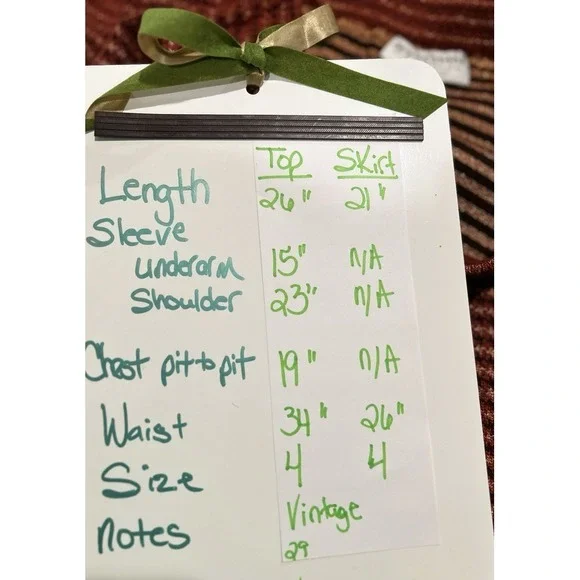 Top Skirt
Length 26" 21"
Sleeve
underarm 15" n/A
Shoulder 23" n/A
Chest pit to pit 19" n/A
Waist 34" 26"
Size 4 4
notes Vintage
29